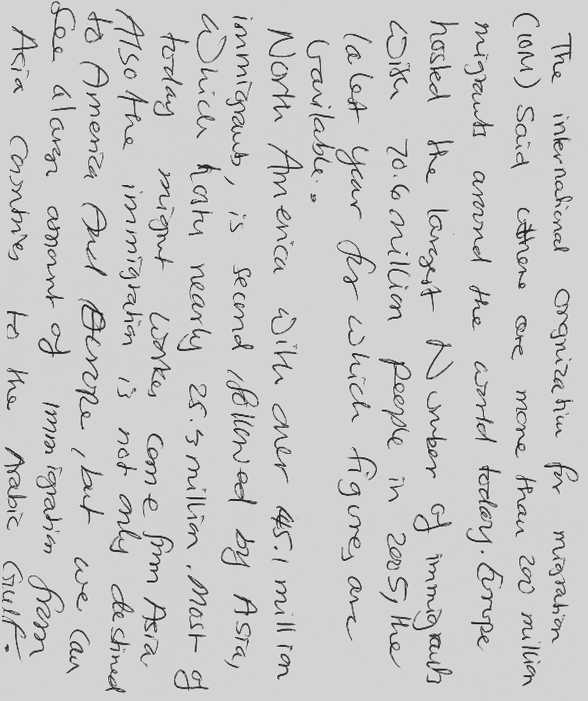 The international orgnization for migration
(IOM) said there are more than 200 million
migrants around the world today. Europe
hosted the largest Number of immigrants
with 70.6 million people in 2005, the
latest year for which figures are
available.
North America with over 45.1 million
immigrants, is second, followed by Asia,
which hosts nearly 25.3 million. Most of
today migrant workes come from Asia.
Also the immigration is not only destined
to America And Europe, but we can
see a large amount of immigration from
Asia Countries to the Arabic Gulf.